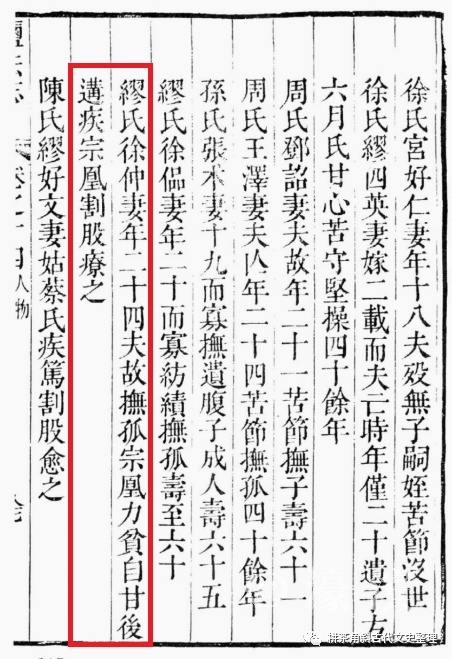 徐氏宮好仁妻年十八夫歿無子嗣姪苦節沒世
徐氏繆四英妻嫁二載而夫亡時年僅二十遺子方
六月氏甘心苦守堅操四十餘年
周氏鄧詔妻夫故年二十一苦節撫子壽六十一
周氏王澤妻夫亾年二十四苦節撫孤四十餘年
孫氏張本妻十九而寡撫遺腹子成人壽六十五
繆氏徐侃妻年二十而寡紡績撫孤壽至六十
繆氏徐仲妻年二十四夫故撫孤宗凰力貧自甘後
遘疾宗凰割股療之
陳氏繆好文妻姑蔡氏疾篤割股愈之
卷之十四人物
桃花角斜古代文史整理